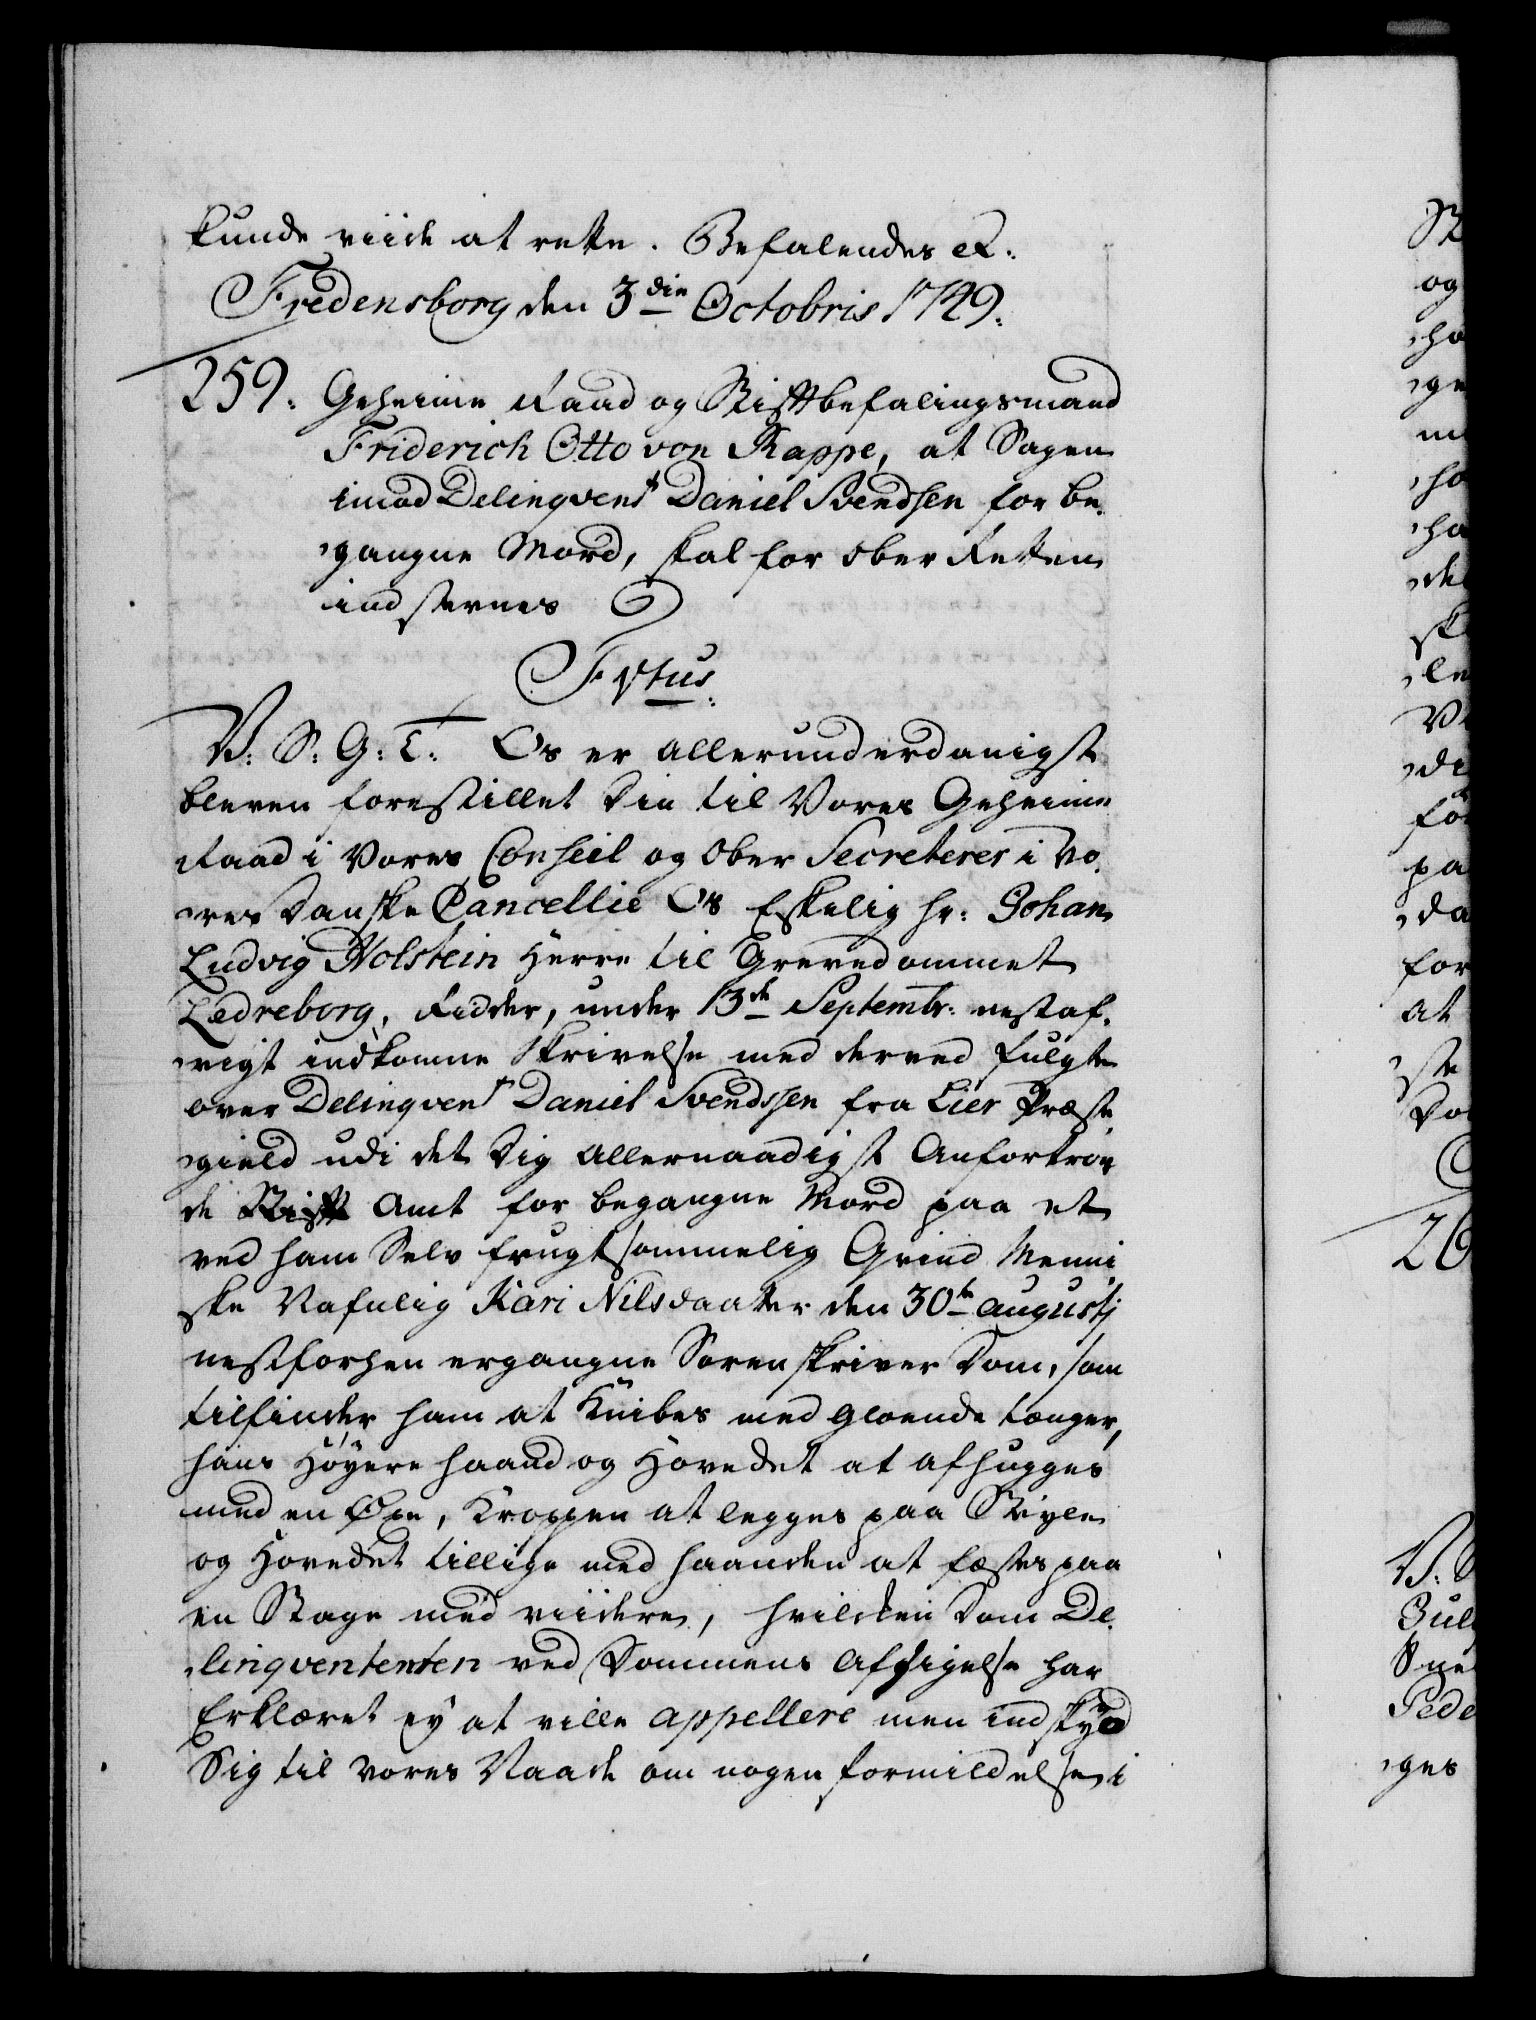 kunde viide at rette. Befalendes etc:
Fredensborg den 3die Octobris 1749.
259. Geheime Raad og Stiftbefalingsmand
Friderich Otto von Rappe, at Sagen
imod Delinqvent Daniel Svendsen for be-
gangne Mord, skal for Ober Retten
indstevnes
Ftus.
V: S: G: T: Os er allerunderdanigst
bleven forestillet Din til Vores Geheime
Raad i Vores Conseil og Ober Secreterer i Vo-
res Danske Cancellie Os Elskelig Hr: Johan
Ludvig Holstein Herre til Grevedommet
Ledreborg, Ridder, under 13de Septembr: nestaf-
vigt indkomne Skrivelse med derved fulgte
over Delinqvent Daniel Svendssen fra Lier Præste-
gield udi det Dig allernaadigst Anfortroe-
de Stift Amt for begangne Mord paa et
ved ham Selv frugtsommelig Qvind Menni-
ske Nafnlig Kari Nilsdaatter den 30te Augustj
nestforhen ergangne Sorenskriver Dom, som
tilfinder ham at Knibes med gloende tænger,
hans Høyere Haand og Hovedet at afhugges
med en Øxe, Kroppen at legges paa Steyle
og Hovedet tillige med Haanden at fæstes paa
en Stage med viidere, hvilcken Dom De-
linqvententen ved Dommens Afsigelse har
Erklæret ey at ville appellere men indskyd
Sig til Vores Naade om nogen formildelse i